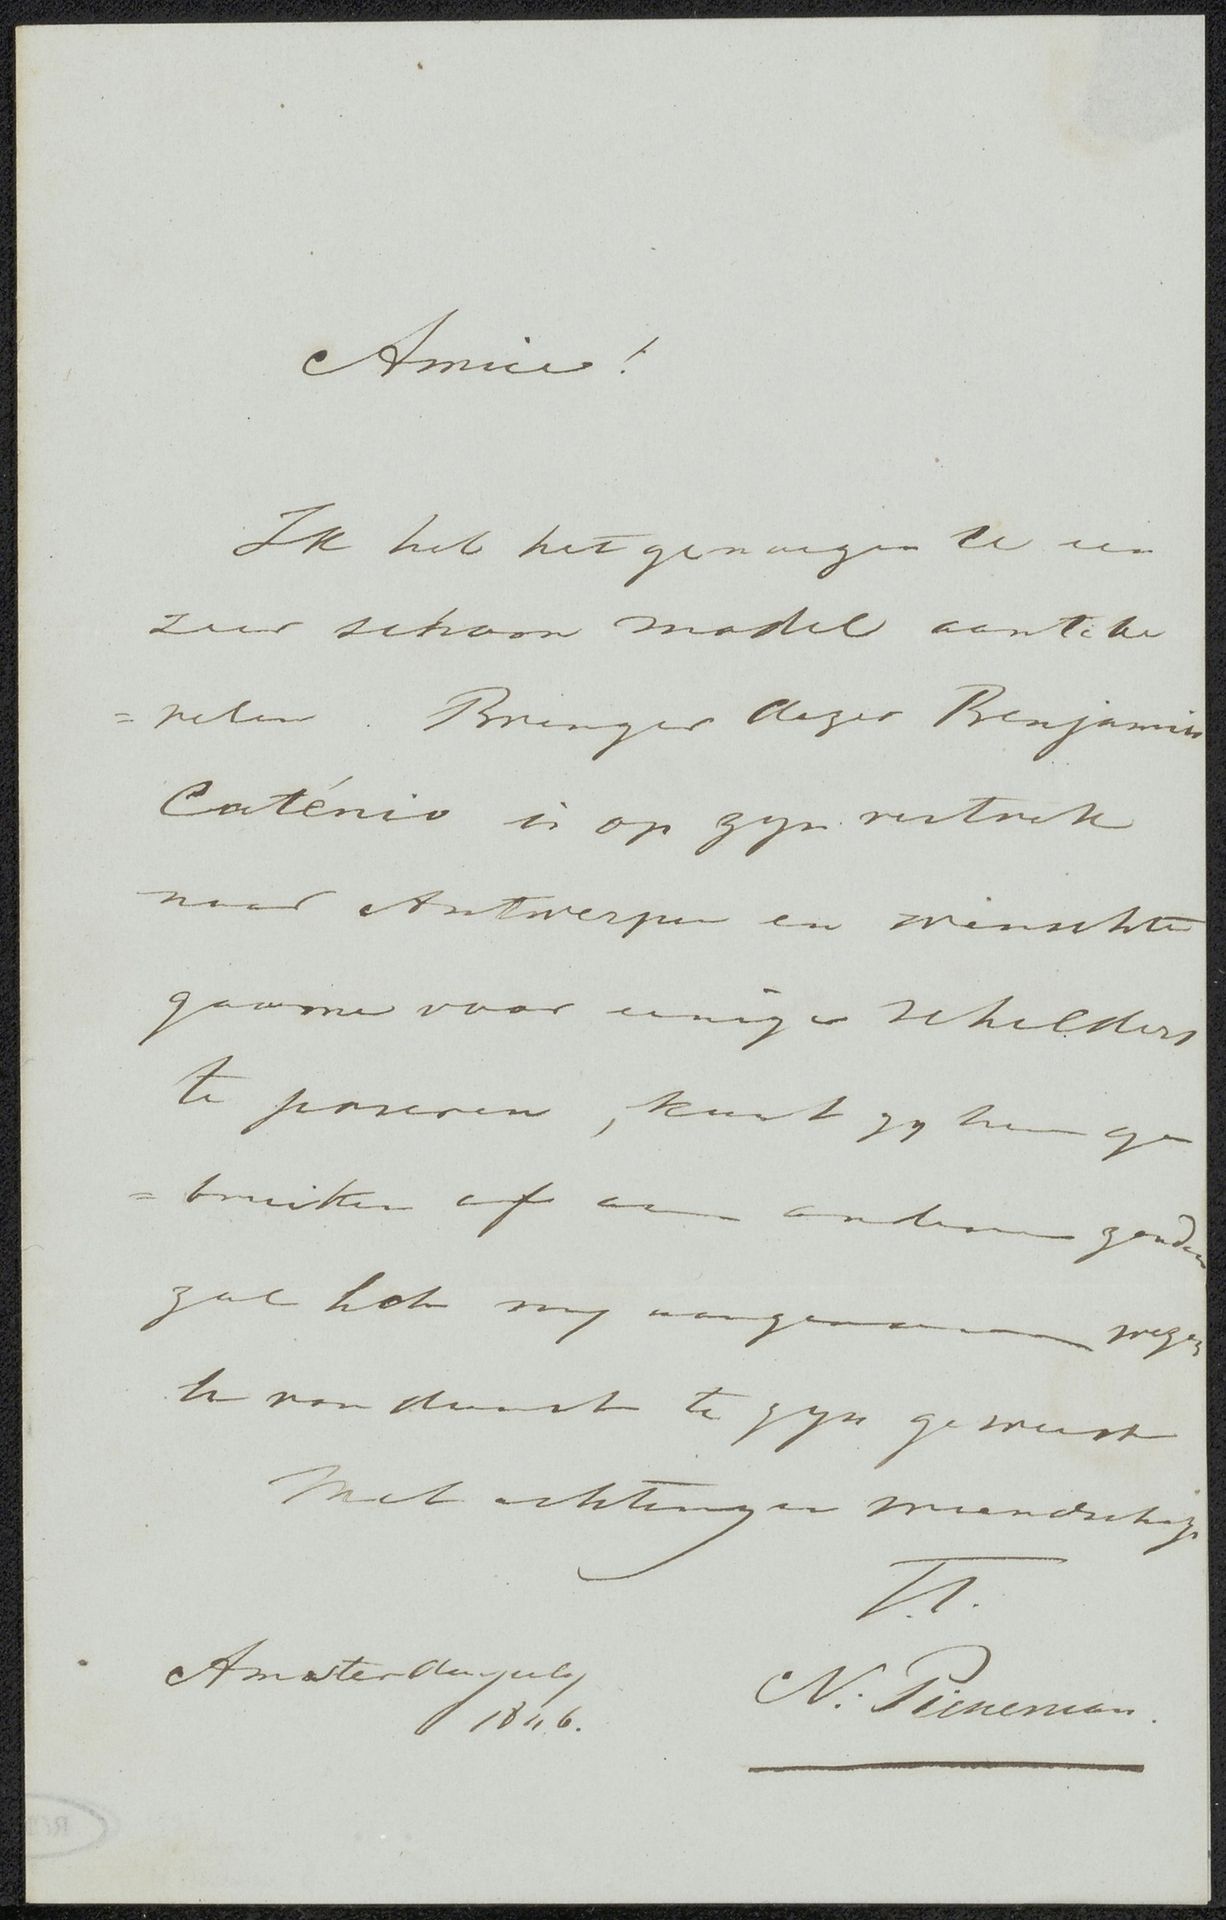 Amice!
Ik heb het genoegen U een
zeer schoon model aan te be
= velen. Brenger dezer Benjamin
Caténio is op zyn vertrek
naar Antwerpen en wenschte
gaarne voor eenige schilders
te poseren, kunt gy hem ge
= bruiken of aan anderen zenden
zal het my aangenaam wezen
U van dienst te zyn geweest
Met achting en vriendschap
T.T.
N. Pieneman.
Amsterdam July
1846.